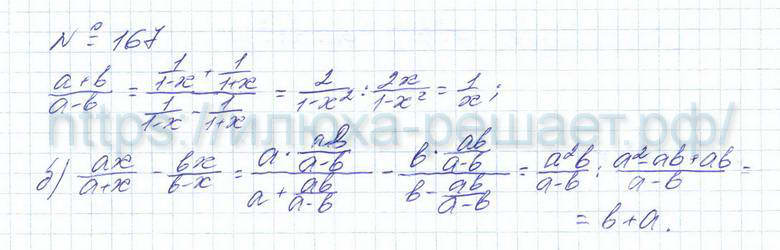 № 167
(a+b)/(a-b) = (1/(1-x) + 1/(1+x))/(1/(1-x) - 1/(1+x)) = 2/(1-x²) : 2x/(1-x²) = 1/x;
https://илюха-решает.рф/
б) ax/(a+x) - bx/(b-x) = (a · ab/(a-b))/(a + ab/(a-b)) - (b · ab/(a-b))/(b - ab/(a-b)) = a²b/(a-b) : (a²-ab+ab)/(a-b) =
= b+a.